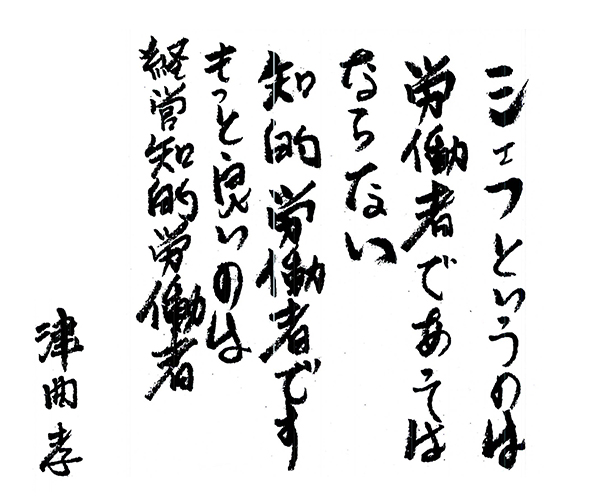 シェフというのは
労働者であっては
ならない
知的労働者です
もっと良いのは
経営知的労働者
津曲孝